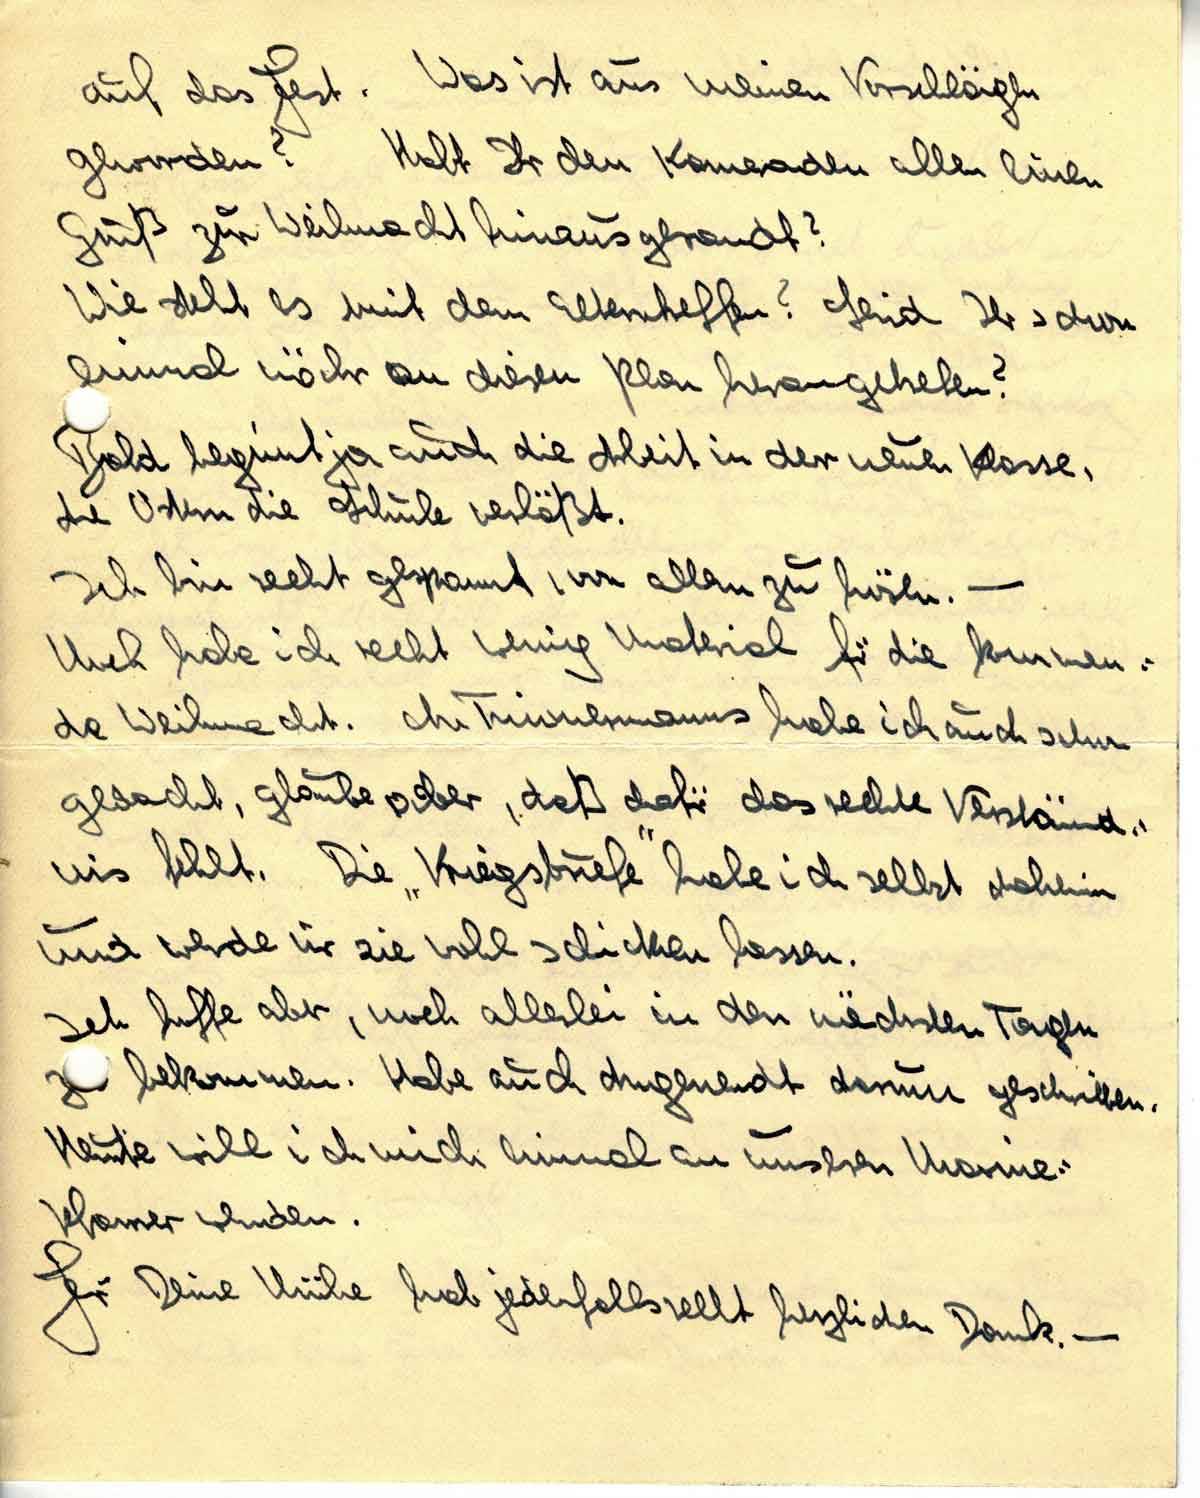 auf das Fest. Was ist aus meinen Vorschlägen
geworden? Habt Ihr den Kameraden allen einen
Gruß zur Weihnacht hinausgesandt?
Wie steht es mit dem Elterntreffen? Seid Ihr schon
einmal näher an diesen Plan herangetreten?
Bald beginnt ja auch die Arbeit in der neuen Klasse,
die Ostern die Schule verläßt.
Ich bin recht gespannt, von allem zu hören. —
Noch habe ich recht wenig Material für die kommen-
de Weihnacht. An Timmermanns habe ich auch schon
gedacht, glaube aber, daß dafür das rechte Verständ-
nis fehlt. Die „Kriegsbriefe" habe ich selbst daheim
und werde mir sie wohl schicken lassen.
Ich hoffe aber, noch allerlei in den nächsten Tagen
zu bekommen. Habe auch darum geschrieben.
Heute will ich mich einmal an unseren Marine-
pfarrer wenden.
Für Deine Mühe hab jedenfalls recht herzlichen Dank. —